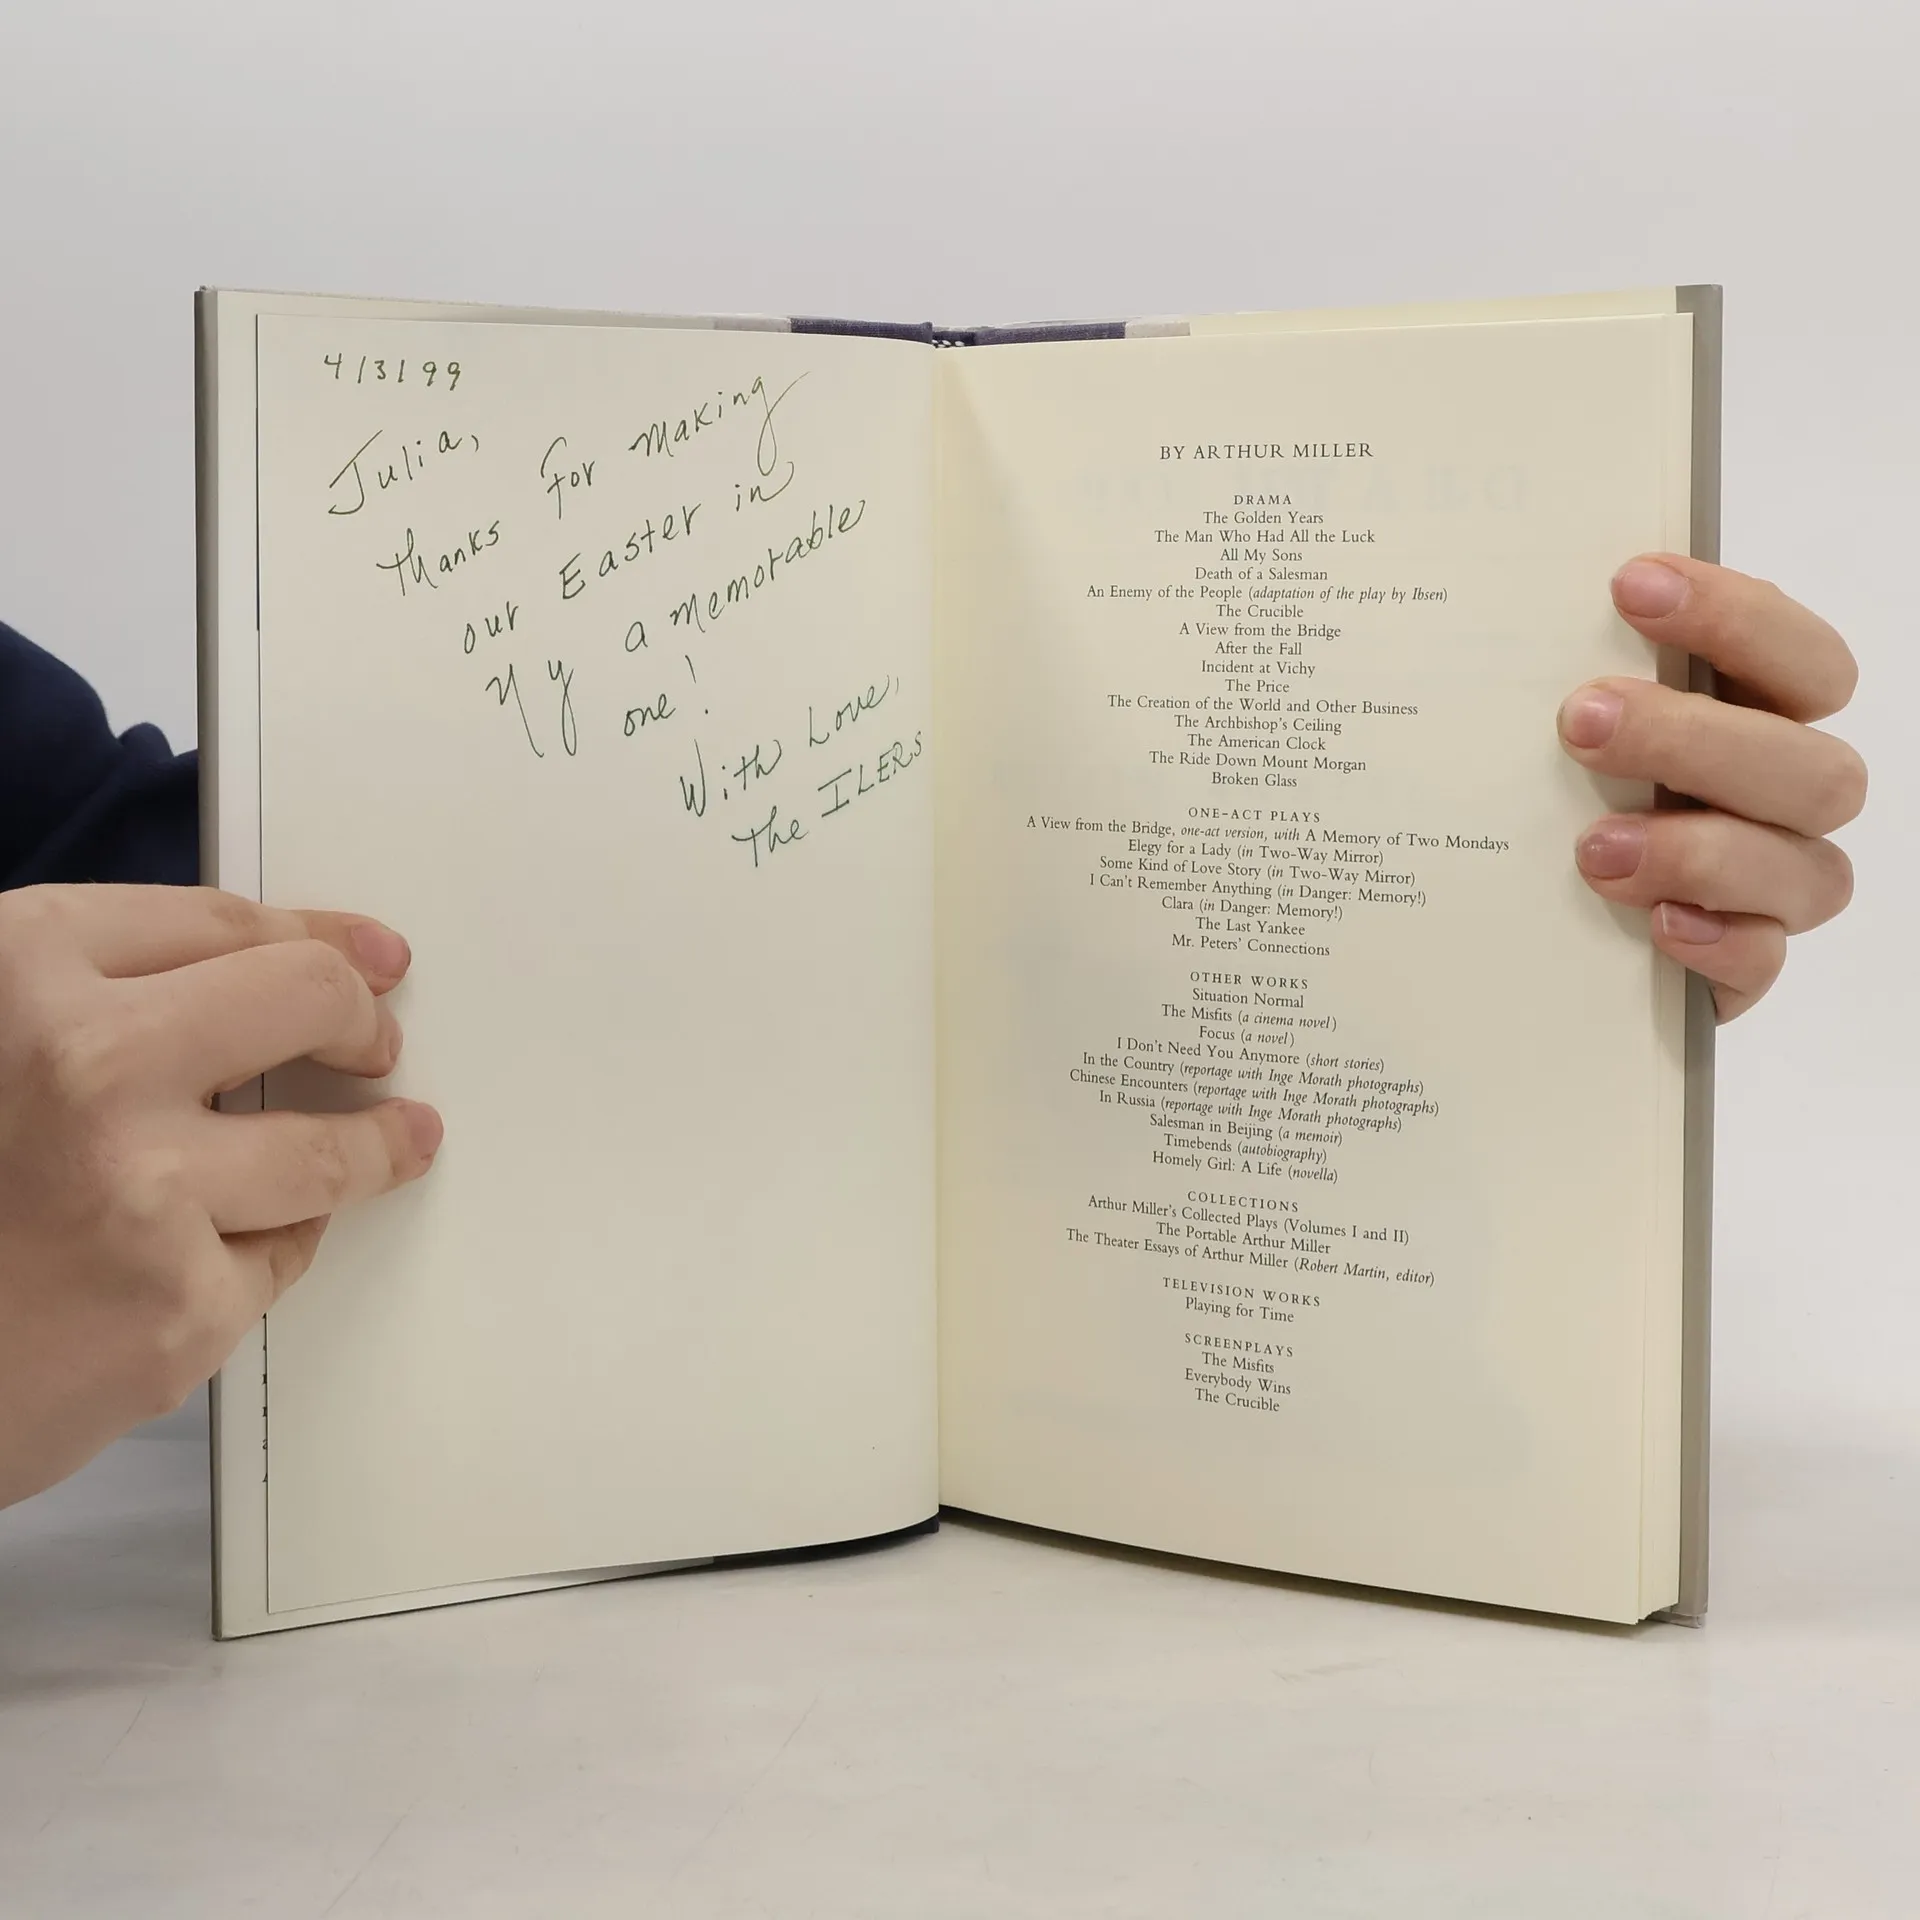 4/3/99
Julia,
Thanks for making
our Easter in
NY a memorable
one!
With Love,
The ILERS
BY ARTHUR MILLER
DRAMA
The Golden Years
The Man Who Had All the Luck
All My Sons
Death of a Salesman
An Enemy of the People (adaptation of the play by Ibsen)
The Crucible
A View from the Bridge
After the Fall
Incident at Vichy
The Price
The Creation of the World and Other Business
The Archbishop's Ceiling
The American Clock
The Ride Down Mount Morgan
Broken Glass
ONE-ACT PLAYS
A View from the Bridge, one-act version, with A Memory of Two Mondays
Elegy for a Lady (in Two-Way Mirror)
Some Kind of Love Story (in Two-Way Mirror)
I Can't Remember Anything (in Danger: Memory!)
Clara (in Danger: Memory!)
The Last Yankee
Mr. Peters' Connections
OTHER WORKS
Situation Normal
The Misfits (a cinema novel)
Focus (a novel)
I Don't Need You Anymore (short stories)
In the Country (reportage with Inge Morath photographs)
Chinese Encounters (reportage with Inge Morath photographs)
In Russia (reportage with Inge Morath photographs)
Salesman in Beijing (a memoir)
Timebends (autobiography)
Homely Girl: A Life (novella)
COLLECTIONS
Arthur Miller's Collected Plays (Volumes I and II)
The Portable Arthur Miller
The Theater Essays of Arthur Miller (Robert Martin, editor)
TELEVISION WORKS
Playing for Time
SCREENPLAYS
The Misfits
Everybody Wins
The Crucible